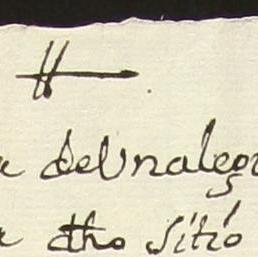 de Una legu
dho sitio